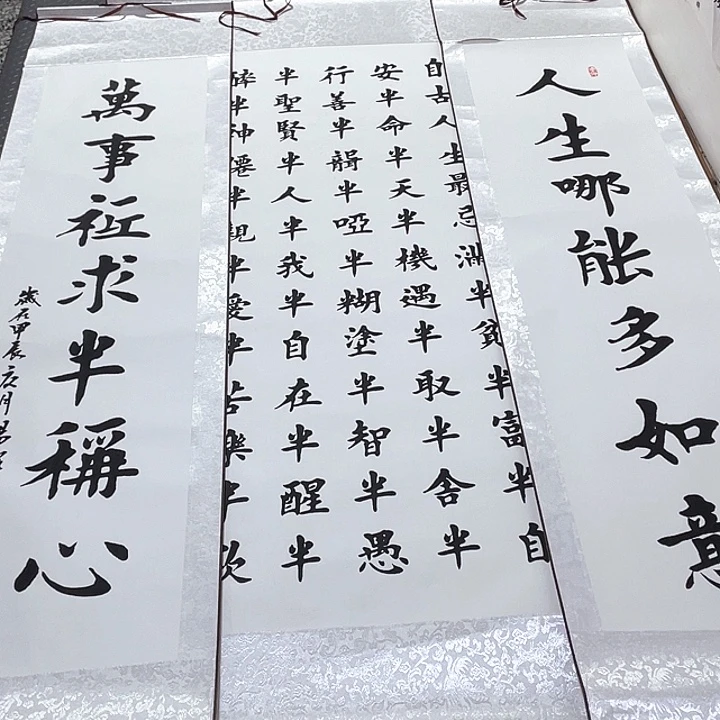 人生哪能多如意
自古人生最忌滿半貧半富半自
安半命半天半機遇半取半舍半
行善半半啞半糊塗半智半愚
半聖賢半人半我半自在半醒半
醉半神僊半親半愛半苦樂半
萬事祗求半稱心
歲在甲辰月